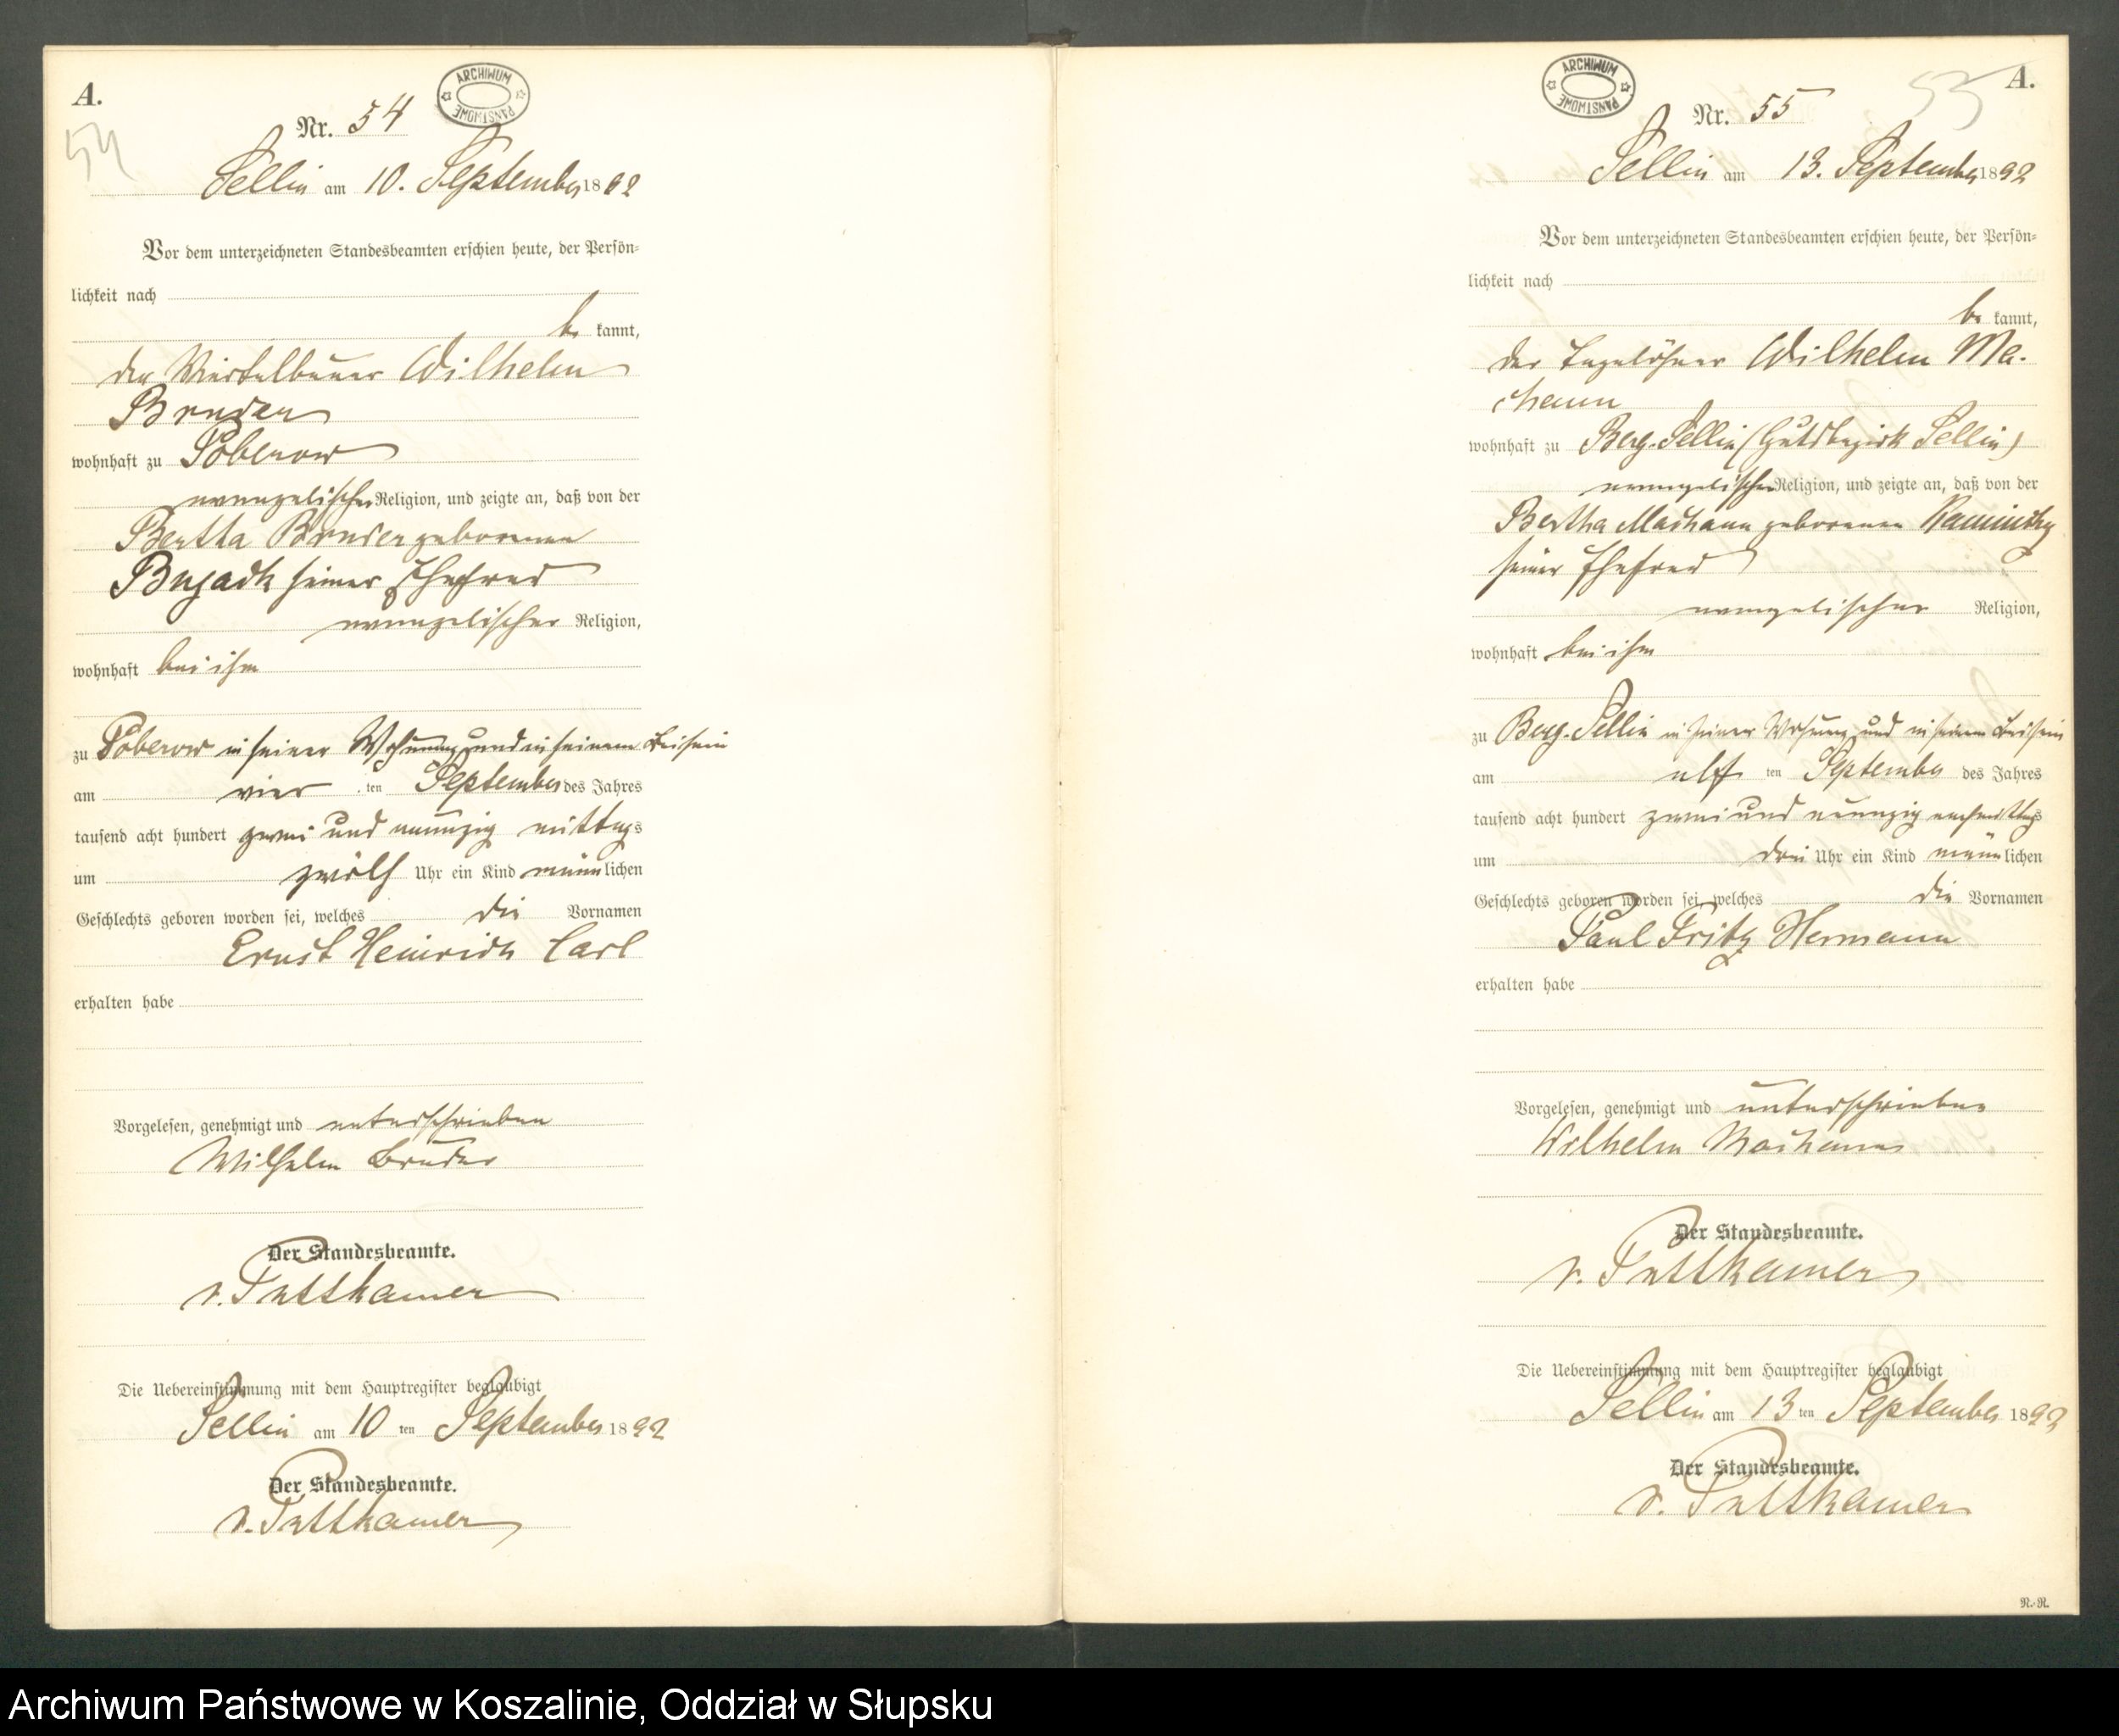 A.
54
ARCHIWUM PAŃSTWOWE
Nr. 54
Sellin am 10. September 1892
Vor dem unterzeichneten Standesbeamten erschien heute, der Persön=
lichkeit nach
be kannt,
der Viertelbauer Wilhelm
Bruder
wohnhaft zu Poberow
evangelischer Religion, und zeigte an, daß von der
Bertha Bruder geborenen
seiner Ehefrau
evangelischer Religion,
wohnhaft bei ihm
zu Poberow in seiner Wohnung und in seinem Beisein
am vier ten September des Jahres
tausend acht hundert zwei und neunzig mittags
um zwölf Uhr ein Kind männlichen
Geschlechts geboren worden sei, welches die Vornamen
Ernst Heinrich Carl
erhalten habe
Vorgelesen, genehmigt und unterschrieben
Wilhelm Bruder
Der Standesbeamte.
v. Puttkamer
Die Uebereinstimmung mit dem Hauptregister beglaubigt
Sellin am 10 ten September 1892
Der Standesbeamte.
v. Puttkamer
A.
55
ARCHIWUM PAŃSTWOWE
Nr. 55
Sellin am 13. September 1892
Vor dem unterzeichneten Standesbeamten erschien heute, der Persön=
lichkeit nach
be kannt,
der Tagelöhner Wilhelm Ma-
chann
wohnhaft zu Berg-Sellin (Gutsbezirk Sellin)
evangelischer Religion, und zeigte an, daß von der
Bertha Machann geborenen Kaminsky
seiner Ehefrau
evangelischer Religion,
wohnhaft bei ihm
zu Berg-Sellin in seiner Wohnung und in seinem Beisein
am elf ten September des Jahres
tausend acht hundert zwei und neunzig nachmittags
um drei Uhr ein Kind männlichen
Geschlechts geboren worden sei, welches die Vornamen
Paul Fritz Hermann
erhalten habe
Vorgelesen, genehmigt und unterschrieben
Wilhelm Machann
Der Standesbeamte.
v. Puttkamer
Die Uebereinstimmung mit dem Hauptregister beglaubigt
Sellin am 13 ten September 1892
Der Standesbeamte.
v. Puttkamer
R.=R.
Archiwum Państwowe w Koszalinie, Oddział w Słupsku